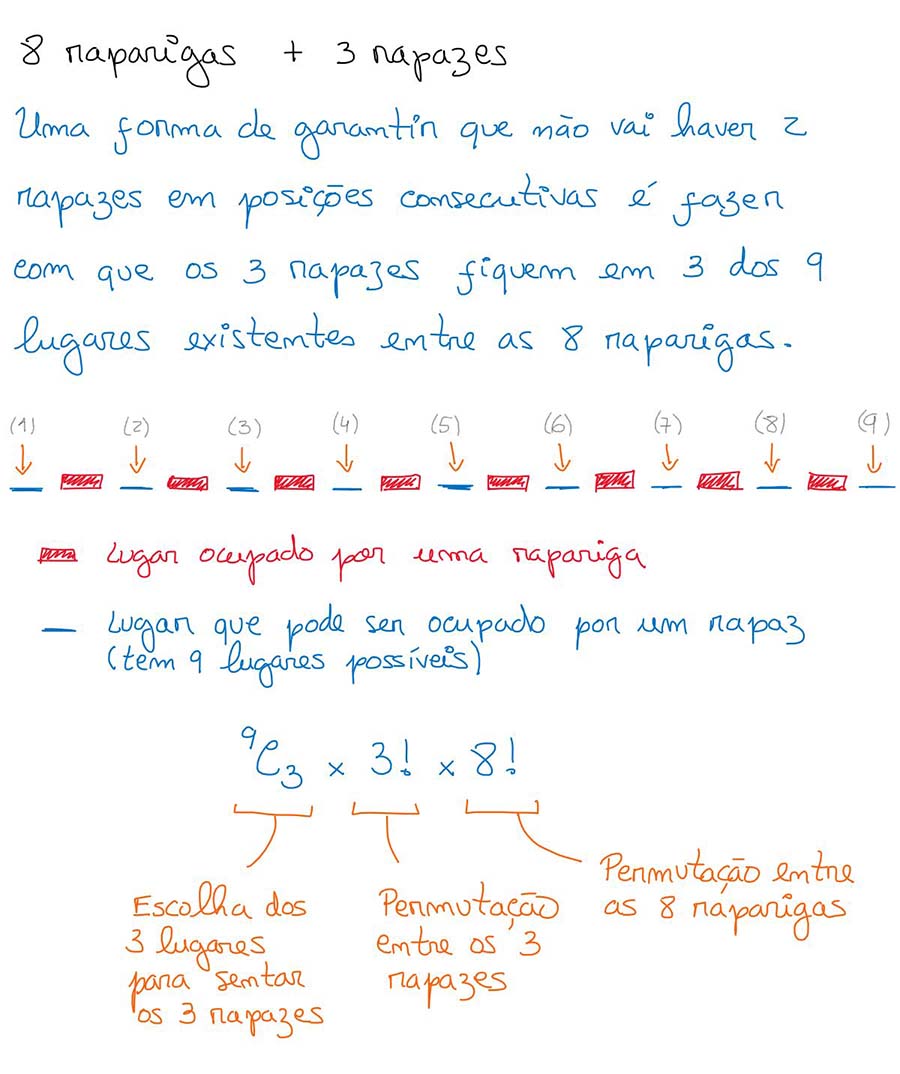 8 raparigas + 3 rapazes
Uma forma de garantir que não vai haver 2
rapazes em posições consecutivas é fazer
com que os 3 rapazes fiquem em 3 dos 9
lugares existentes entre as 8 raparigas.
(1) (2) (3) (4) (5) (6) (7) (8) (9)
Lugar ocupado por uma rapariga
Lugar que pode ser ocupado por um rapaz
(tem 9 lugares possíveis)
⁹C₃ × 3! × 8!
Escolha dos
3 lugares
para sentar
os 3 rapazes
Permutação
entre os 3
rapazes
Permutação entre
as 8 raparigas